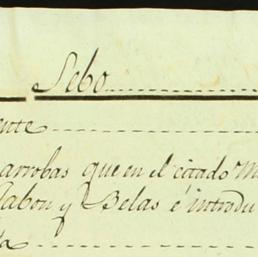 Sebo
ente
arrobas que en el citado M
Jabon y Belas é introdu
ta